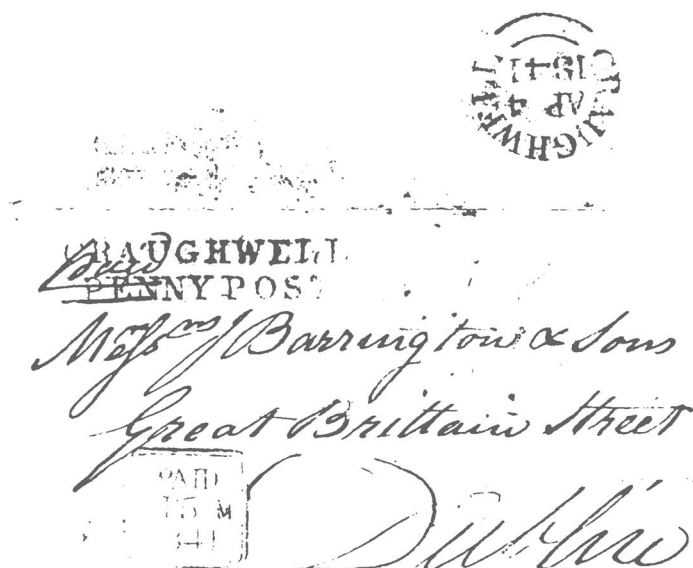 CRAUGHWELL
AP 4
1841
CRAUGHWELL
PENNY POST
Paid
Messrs J Barrington & Sons
Great Brittain Street
Dublin
PAID
1841